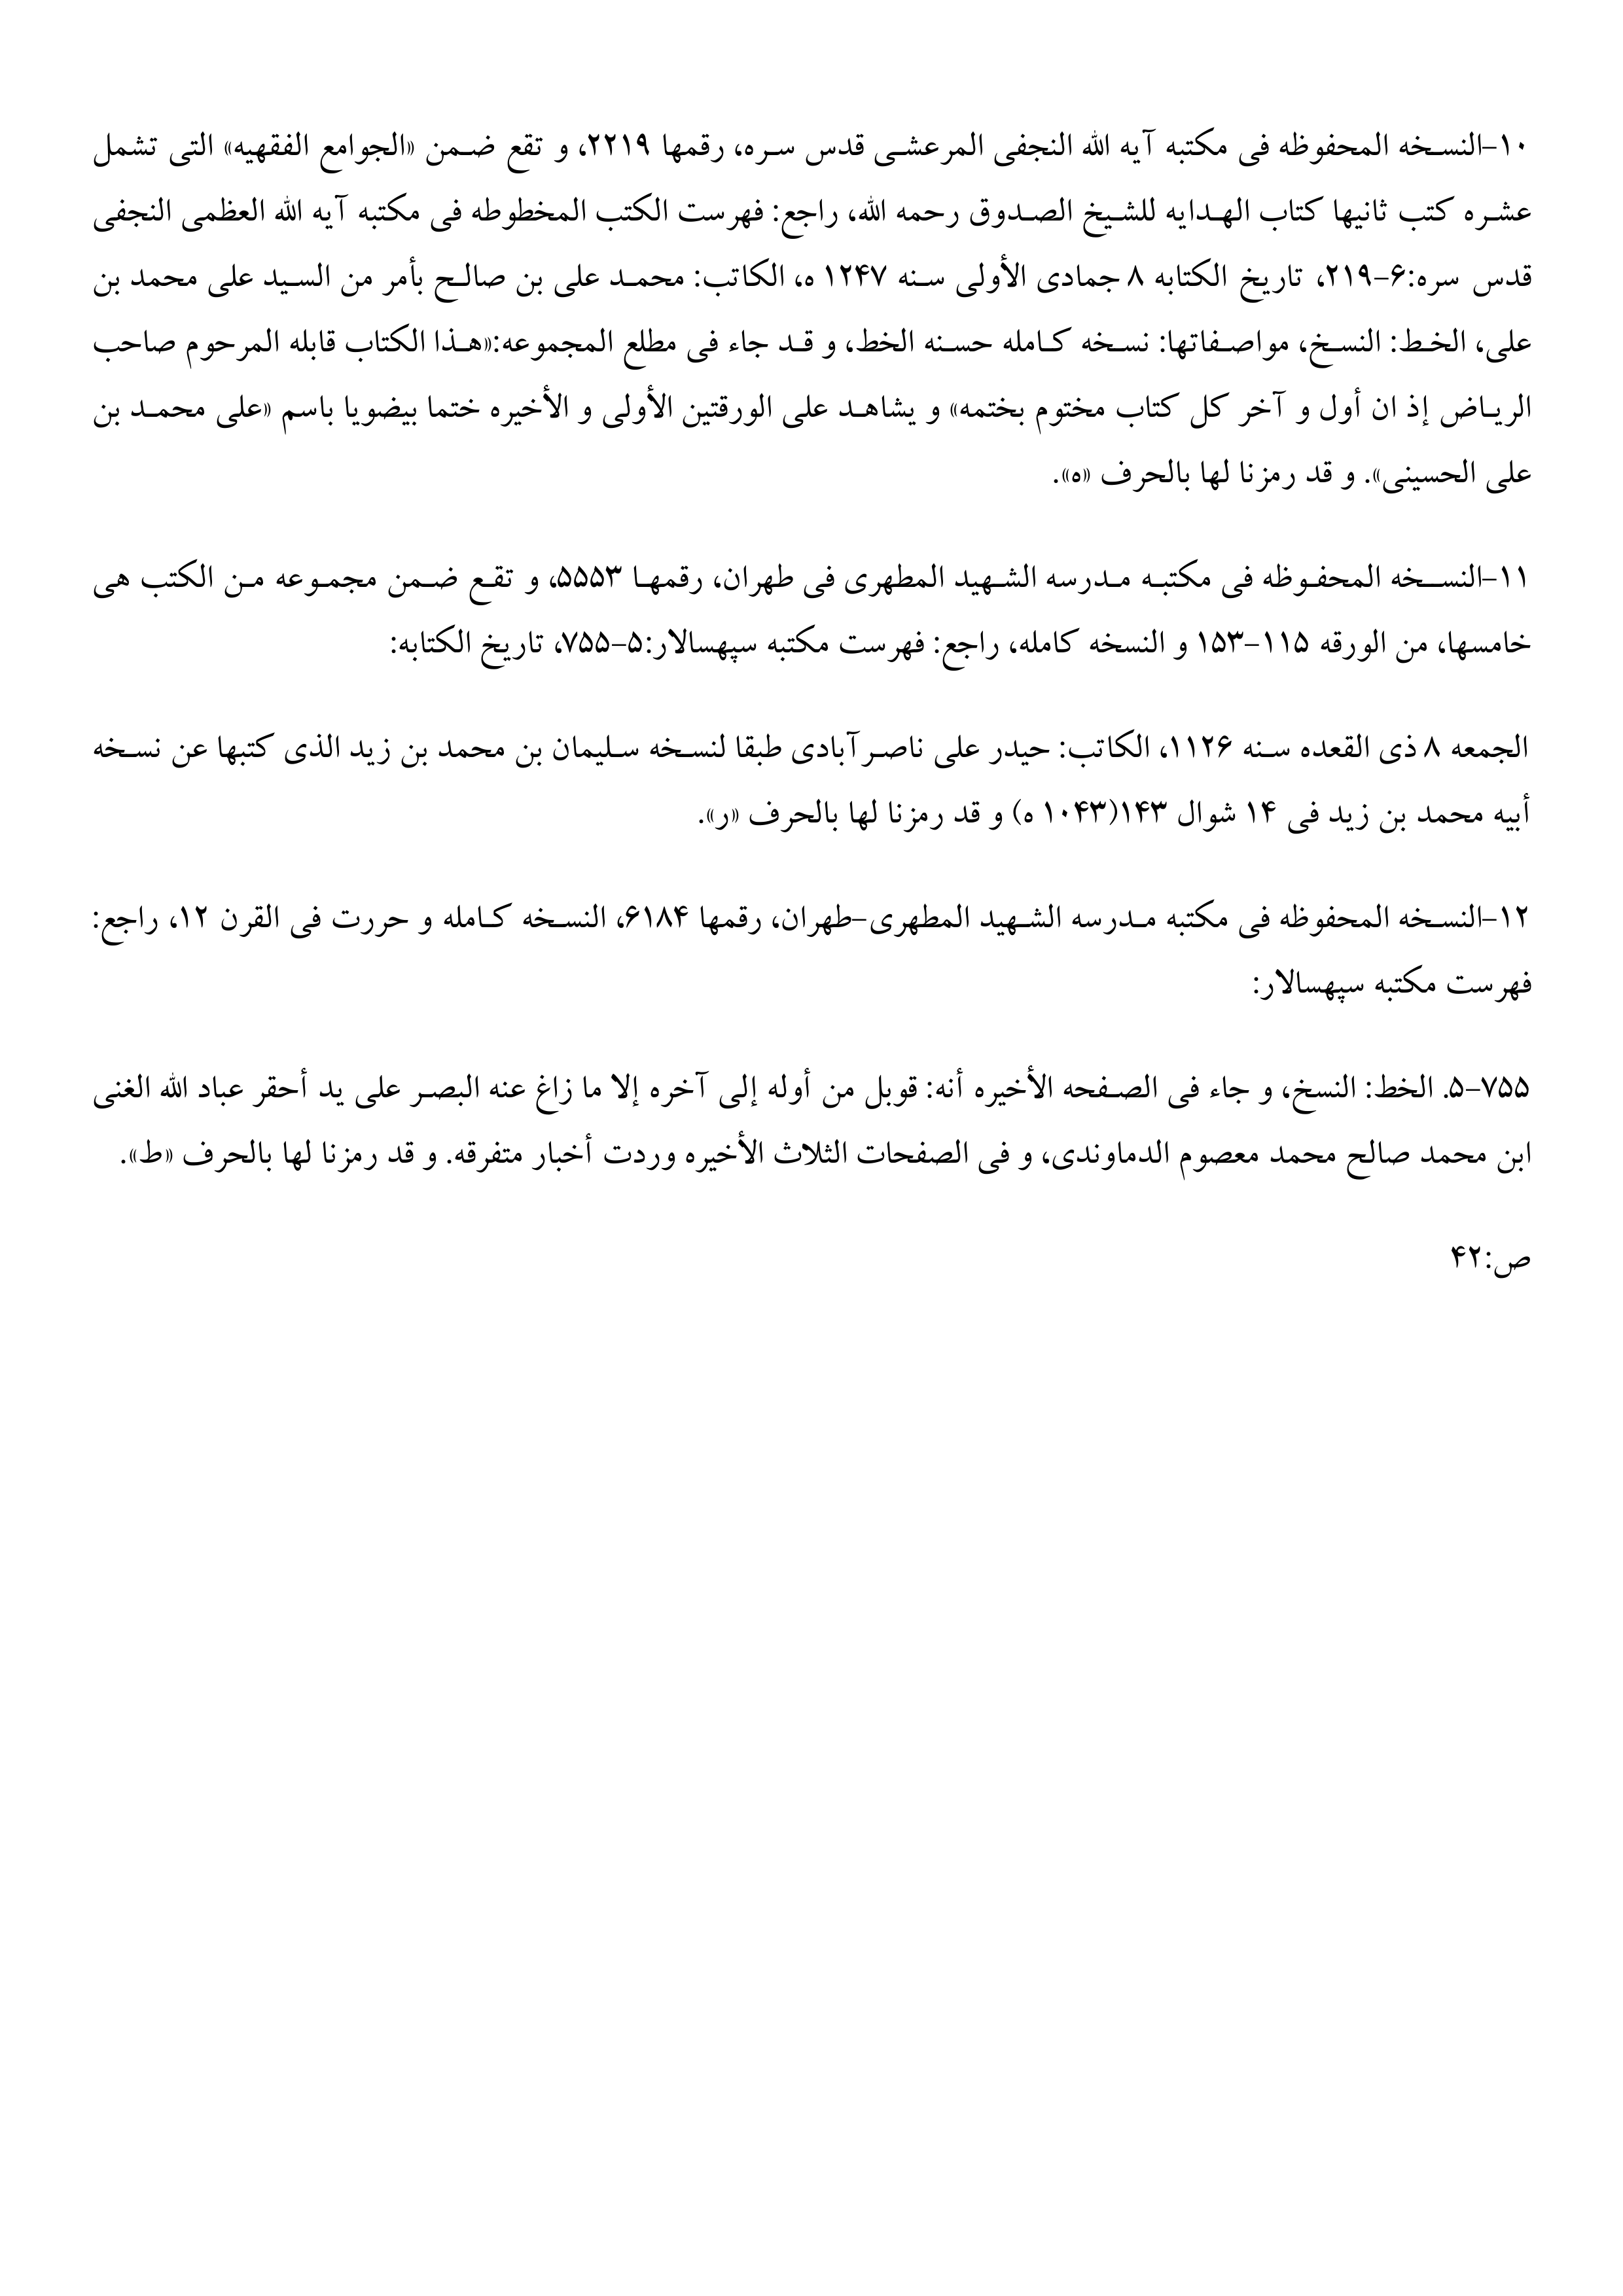 ۱۰-النسخه المحفوظه فی مکتبه آیه الله النجفی المرعشی قدس سره، رقمها ۲۲۱۹، و تقع ضمن «الجوامع الفقهیه» التی تشمل
عشره کتب ثانیها کتاب الهدایه للشیخ الصدوق رحمه الله، راجع: فهرست الکتب المخطوطه فی مکتبه آیه الله العظمی النجفی
قدس سره:۶-۲۱۹، تاریخ الکتابه ۸ جمادی الأولی سنه ۱۲۴۷ ه، الکاتب: محمد علی بن صالح بأمر من السید علی محمد بن
علی، الخط: النسخ، مواصفاتها: نسخه کامله حسنه الخط، و قد جاء فی مطلع المجموعه:«هذا الکتاب قابله المرحوم صاحب
الریاض إذ ان أول و آخر کل کتاب مختوم بختمه» و یشاهد علی الورقتین الأولی و الأخیره ختما بیضویا باسم «علی محمد بن
علی الحسینی». و قد رمزنا لها بالحرف «ه».
۱۱-النسخه المحفوظه فی مکتبه مدرسه الشهید المطهری فی طهران، رقمها ۵۵۵۳، و تقع ضمن مجموعه من الکتب هی
خامسها، من الورقه ۱۱۵-۱۵۳ و النسخه کامله، راجع: فهرست مکتبه سپهسالار:۵-۷۵۵، تاریخ الکتابه:
الجمعه ۸ ذی القعده سنه ۱۱۲۶، الکاتب: حیدر علی ناصرآبادی طبقا لنسخه سلیمان بن محمد بن زید الذی کتبها عن نسخه
أبیه محمد بن زید فی ۱۴ شوال ۱۴۳(۱۰۴۳ ه) و قد رمزنا لها بالحرف «ر».
۱۲-النسخه المحفوظه فی مکتبه مدرسه الشهید المطهری-طهران، رقمها ۶۱۸۴، النسخه کامله و حررت فی القرن ۱۲، راجع:
فهرست مکتبه سپهسالار:
۷۵۵-۵. الخط: النسخ، و جاء فی الصفحه الأخیره أنه: قوبل من أوله إلی آخره إلا ما زاغ عنه البصر علی ید أحقر عباد الله الغنی
ابن محمد صالح محمد معصوم الدماوندی، و فی الصفحات الثلاث الأخیره وردت أخبار متفرقه. و قد رمزنا لها بالحرف «ط».
ص:۴۲